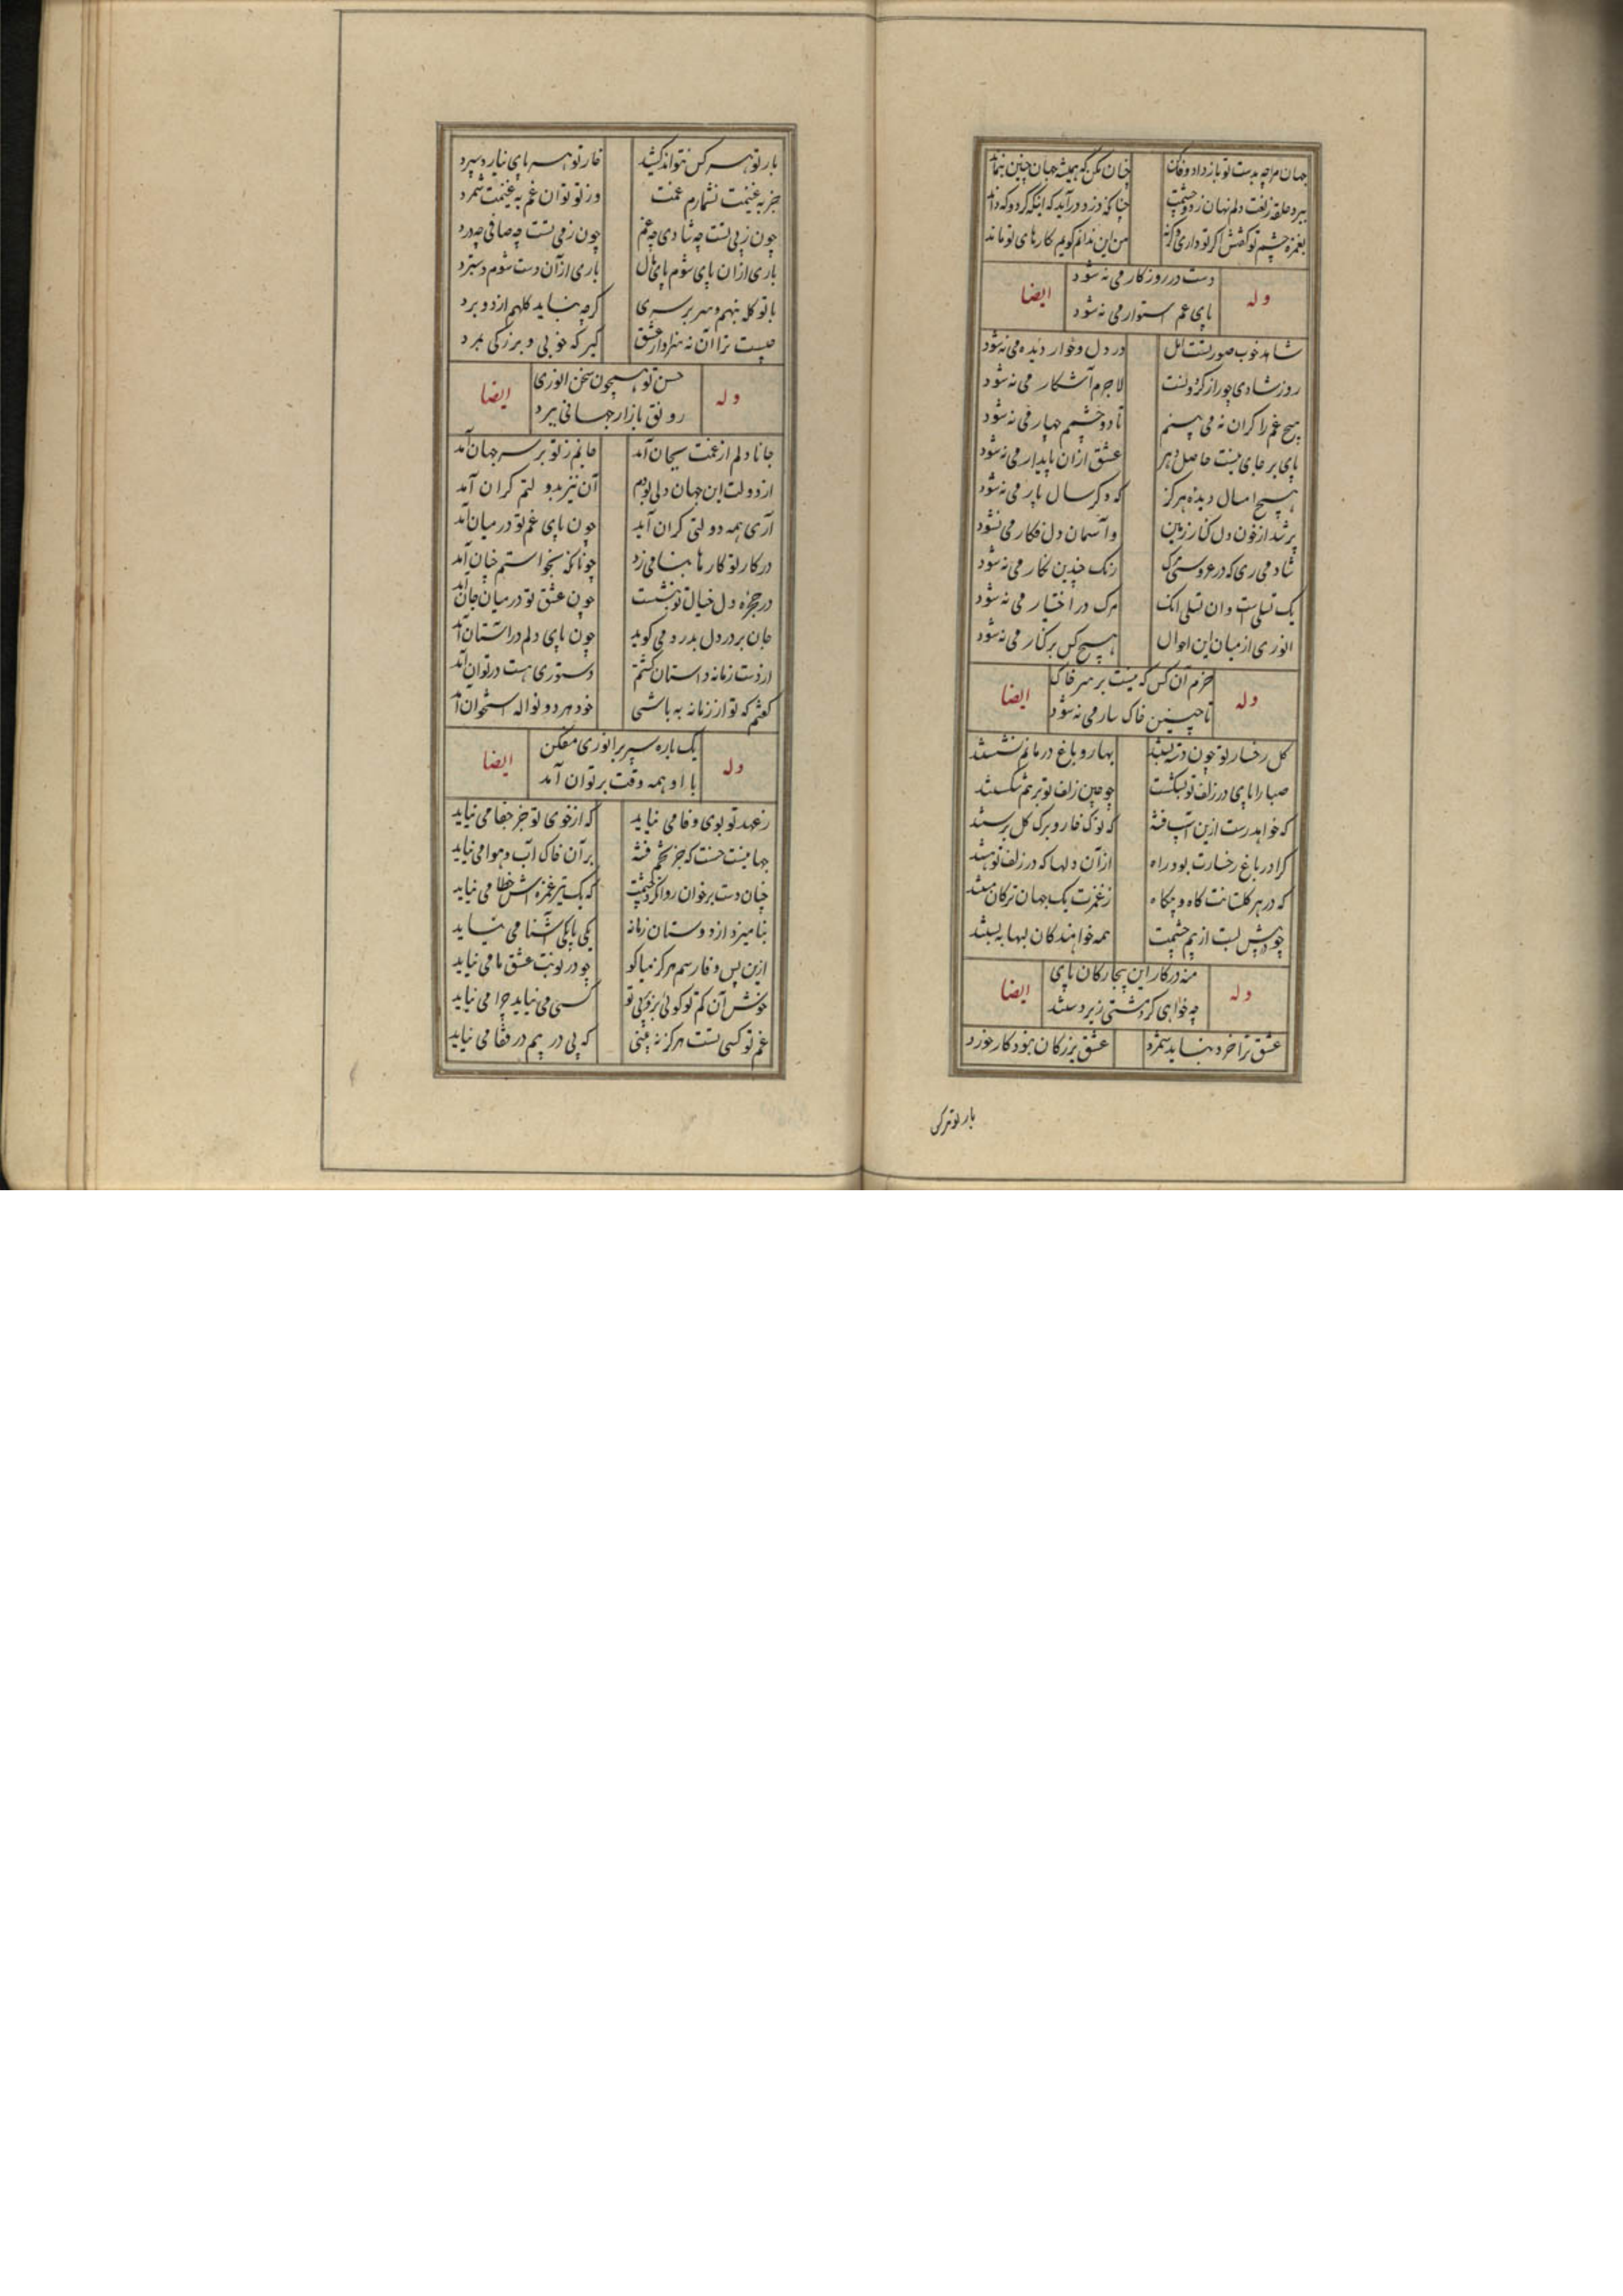 جهان مرا چه بدست تو باز داد وفا کن چنان مکن که همیشه جهان چنین بنماند
ببرد حلقه زلفت دلم نهان ز دو چشمت چنانکه دزد درآید که اینکه کرد و که داند
بغمزه چشم تو کشتش اگر تو داری وگر نه من این ندانم گویم کارهای تو ماند
دست در روزکار می نه شود
وله ایضا
پای عمر استوار می نه شود
شاهد خوب صورتست امل در دل و خوار دیده می نه شود
روز شادی چو راز کردونست لاجرم آشکار می نه شود
هیچ غم را کران نه می بینم تا دو چشمم چهار می نه شود
پای بر جای نیست حاصل دهر عشق ازان پایدار می نه شود
هیچ امسال دیده هرکز که دکر سال پار می نه شود
پر شد از خون دل کنار زمین واسمان دل فکار می نشود
شاد می زی که در عروسی مرک رنک چندین نکار می نه شود
یک تسلیست وان تسلی آنک مرک در اختیار می نه شود
انوری از میان این احوال هیچ کس بر کنار می نه شود
خرم آن کس که نیست بر سر خاک
وله ایضا
تا چنین خاک سار می نه شود
کل رخسار تو چون دسته بستند بهار و باغ در ماتم نشستند
صبا را پای در زلف تو بشکست چو چین زلف تو بر هم شکستند
که خواهد رست ازین آسیب فتنه که نوک خار و برک کل برستند
کرا در باغ رخسارت بود راه ازآن دلها که در زلف تو هستند
که در هر کلستانت کاه و بیکاه ز غمزت یک جهان ترکان مستند
چو در پیش لبت از بیم چشمت همه خواهندکان لبها به بستند
منه در کار این بیچارکان پای
وله ایضا
چه خواهی کرد مشتی زیردستند
عشق ترا خرد نباید شمرد عشق بزرکان نبود کار خورد
بار تو هرکس
بار تو هر کس نتواند کشید خار تو هر پای نیارد سپرد
جز به غنیمت نشمارم غمت وز تو توان غم به غنیمت شمرد
چون ز پی تست چه شادی چه غم چون ز می تست چه صافی چه درد
باری ازان پای شوم پای مال باری ازآن دست شوم دستبرد
با تو کله بنهم و سر بر سری کرچه نباید کلهم ازدو برد
چیست ترا آن نه سزاوار عشق کیر که خوبی و بزرکی بمرد
حسن تو همچون سخن انوری
وله ایضا
رونق بازار جهانی ببرد
جانا دلم از غمت بجان آمد جانم ز تو بر سر جهان آمد
از دولت این جهان دلی بودم آن نیز بدولتم کران آمد
آری همه دولتی کران آید چون پای غم تو در میان آمد
در کار تو کارها بنامیزد چونانکه بخواستم چنان آمد
در حجره دل خیال تو بنشست چون عشق تو در میان جان آمد
جان بر در دل بدرد می کوید چون پای دلم در آستان آمد
از دست زمانه داستان کشتم دستوری هست درتوان آمد
کفتم که تو از زمانه به باشی خود هر دو نواله استخوان آمد
یک باره سپر بر انوری مفکن
وله ایضا
با او همه وقت بر توان آمد
ز عهد تو بوی وفا می نیاید که از خوی تو جز جفا می نیاید
جهانیست حسنت که جز تخم فتنه بر آن خاک آب و هوا می نیاید
چنان دست بر خون روان کرد چشمت که یک تیر غمزه اش خطا می نیاید
بنامیزد از دوستان زمانه یکی با یکی آشنا می نیاید
ازین پس وفا رسم هرکز میا کو چو در نوبت عشق ما می نیاید
خوش آن کم تو کوئی برو کز پی تو کسی می نیاید چرا می نیاید
غم تو کسی تست هرکز نه بینی که پی در پیم در قفا می نیاید